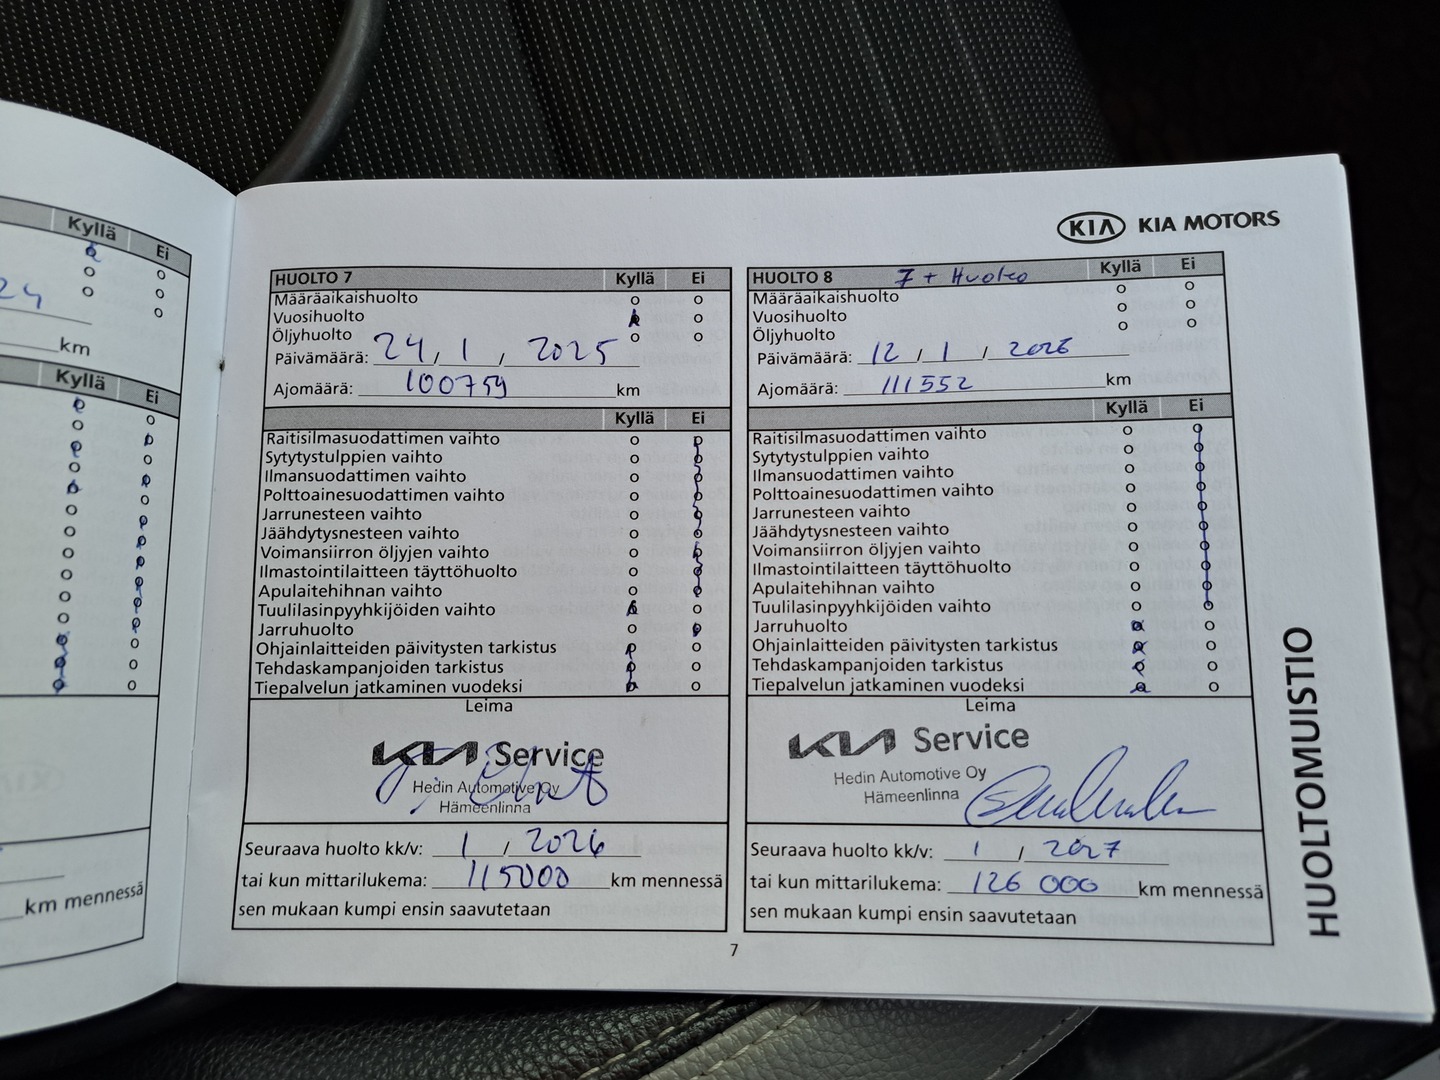 Kyllä Ei
24
km
Kyllä Ei
km mennessä
KIA KIA MOTORS
HUOLTO 7 Kyllä Ei
Määräaikaishuolto
Vuosihuolto
Öljyhuolto
Päivämäärä: 24 / 1 / 2025
Ajomäärä: 100759 km
Kyllä Ei
Raitisilmasuodattimen vaihto
Sytytystulppien vaihto
Ilmansuodattimen vaihto
Polttoainesuodattimen vaihto
Jarrunesteen vaihto
Jäähdytysnesteen vaihto
Voimansiirron öljyjen vaihto
Ilmastointilaitteen täyttöhuolto
Apulaitehihnan vaihto
Tuulilasinpyyhkijöiden vaihto
Jarruhuolto
Ohjainlaitteiden päivitysten tarkistus
Tehdaskampanjoiden tarkistus
Tiepalvelun jatkaminen vuodeksi
Leima
KIA Service
Hedin Automotive Oy
Hämeenlinna
Seuraava huolto kk/v: 1 / 2026
tai kun mittarilukema: 115000 km mennessä
sen mukaan kumpi ensin saavutetaan
HUOLTO 8 7 + Huolto Kyllä Ei
Määräaikaishuolto
Vuosihuolto
Öljyhuolto
Päivämäärä: 12 / 1 / 2026
Ajomäärä: 111552 km
Kyllä Ei
Raitisilmasuodattimen vaihto
Sytytystulppien vaihto
Ilmansuodattimen vaihto
Polttoainesuodattimen vaihto
Jarrunesteen vaihto
Jäähdytysnesteen vaihto
Voimansiirron öljyjen vaihto
Ilmastointilaitteen täyttöhuolto
Apulaitehihnan vaihto
Tuulilasinpyyhkijöiden vaihto
Jarruhuolto
Ohjainlaitteiden päivitysten tarkistus
Tehdaskampanjoiden tarkistus
Tiepalvelun jatkaminen vuodeksi
Leima
KIA Service
Hedin Automotive Oy
Hämeenlinna
Seuraava huolto kk/v: 1 / 2027
tai kun mittarilukema: 126 000 km mennessä
sen mukaan kumpi ensin saavutetaan
HUOLTOMUISTIO
7